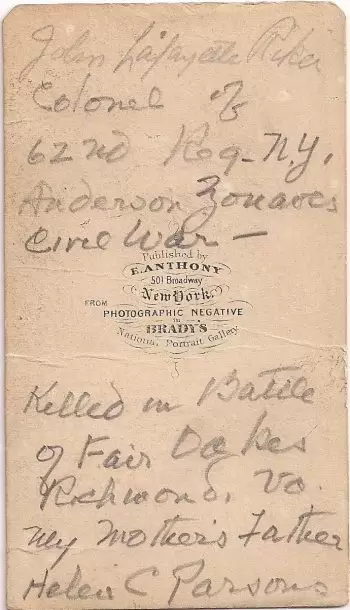 John Lafayette Riker
Colonel of
62nd Reg-N.Y.
Anderson Zouaves
Civil War —
Published by
E. ANTHONY
501 Broadway
New York.
FROM
PHOTOGRAPHIC NEGATIVE
in
BRADY'S
National Portrait Gallery
Killed in Battle
of Fair Oakes
Richmond, Va.
My Mother's Father
Helen C Parsons